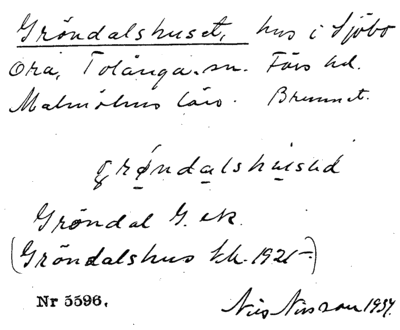 Gröndalshuset, hus i Sjöbo
Ora, Tolånga sn. Färs hd.
Malmöhus län. Brunnet.
grøndalshused
Gröndal G. ek
(Gröndalshus kk. 1921–)
Nr 5596. Nils Nilsson 1934.